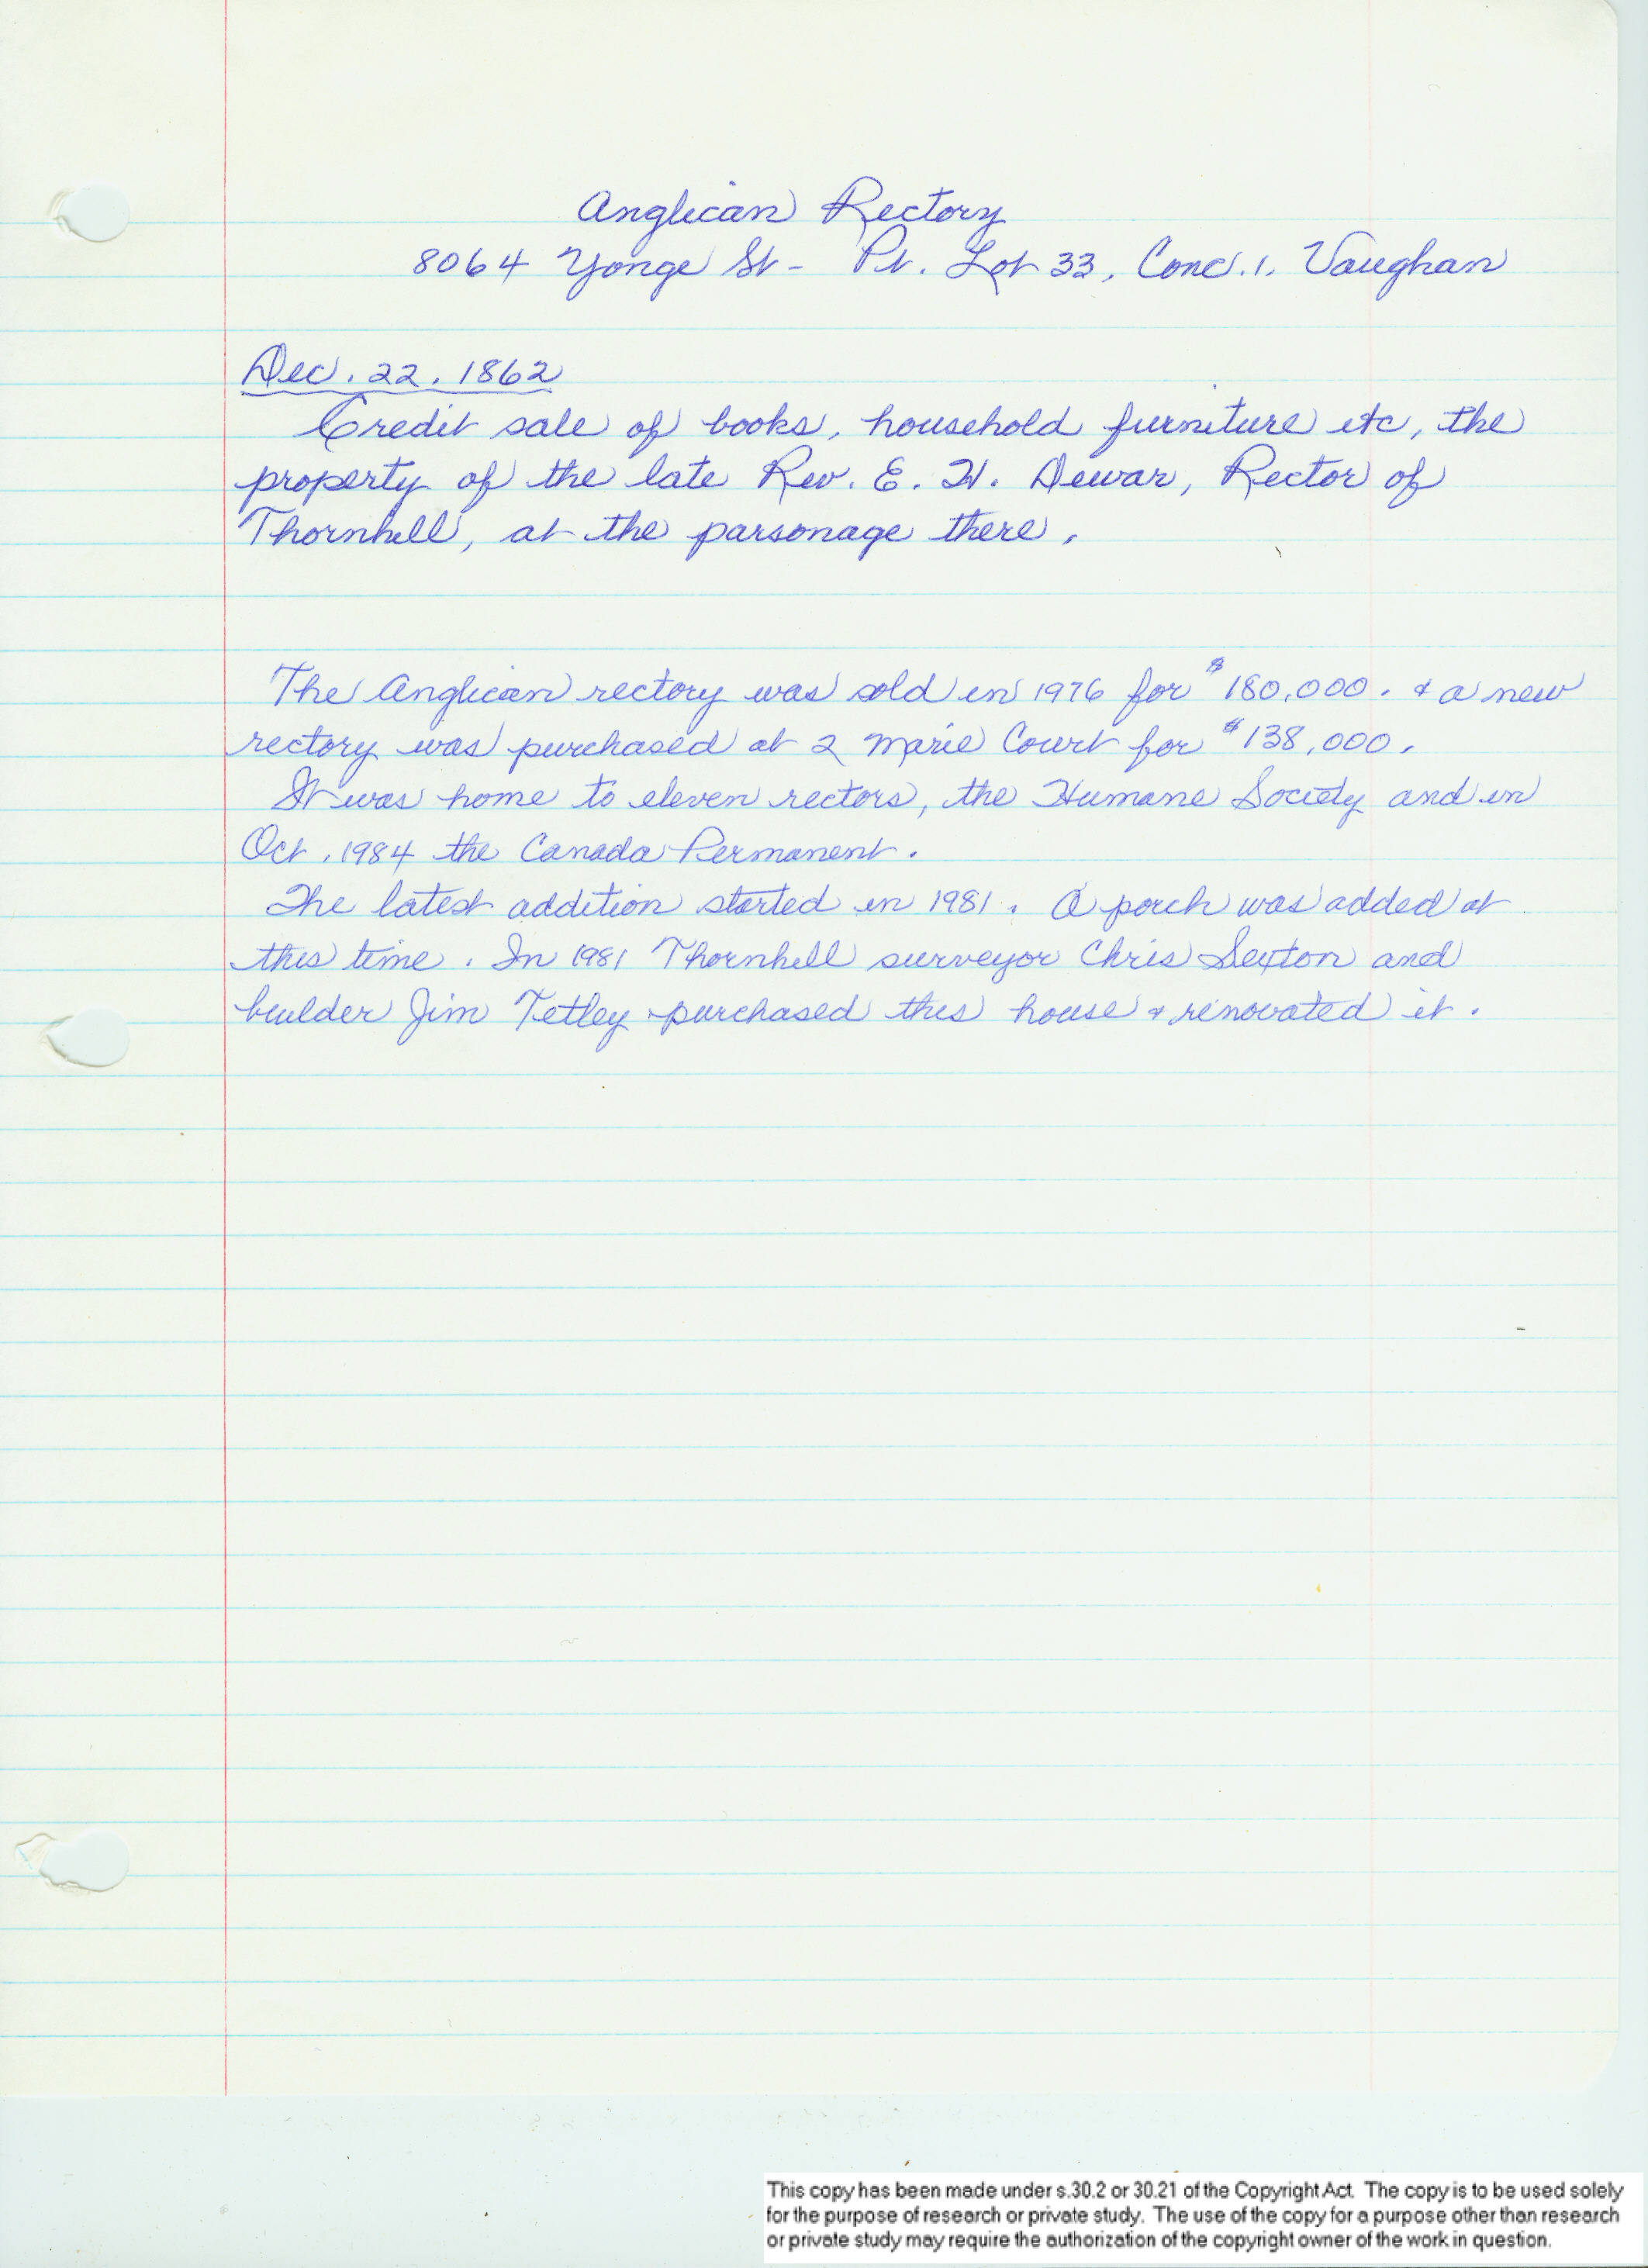 Anglican Rectory
8064 Yonge St - Pt. Lot 33, Conc. 1, Vaughan
Dec. 22, 1862
Credit sale of books, household furniture etc, the
property of the late Rev. E. H. Dewar, Rector of
Thornhill, at the parsonage there.
The Anglican rectory was sold in 1976 for $180,000. & a new
rectory was purchased at 2 Marie Court for $138,000.
It was home to eleven rectors, the Humane Society and in
Oct. 1984 the Canada Permanent.
The latest addition started in 1981. A porch was added at
this time. In 1981 Thornhill surveyor Chris Sexton and
builder Jim Tetley purchased this house & renovated it.
This copy has been made under s.30.2 or 30.21 of the Copyright Act. The copy is to be used solely
for the purpose of research or private study. The use of the copy for a purpose other than research
or private study may require the authorization of the copyright owner of the work in question.